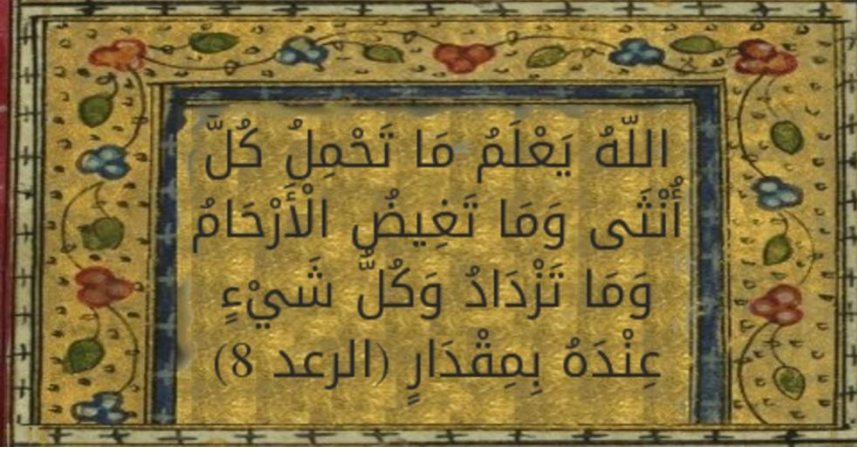 اللّهُ يَعْلَمُ مَا تَحْمِلُ كُلُّ
أُنْثَى وَمَا تَغِيضُ الْأَرْحَامُ
وَمَا تَزْدَادُ وَكُلُّ شَيْءٍ
عِنْدَهُ بِمِقْدَارٍ (الرعد 8)